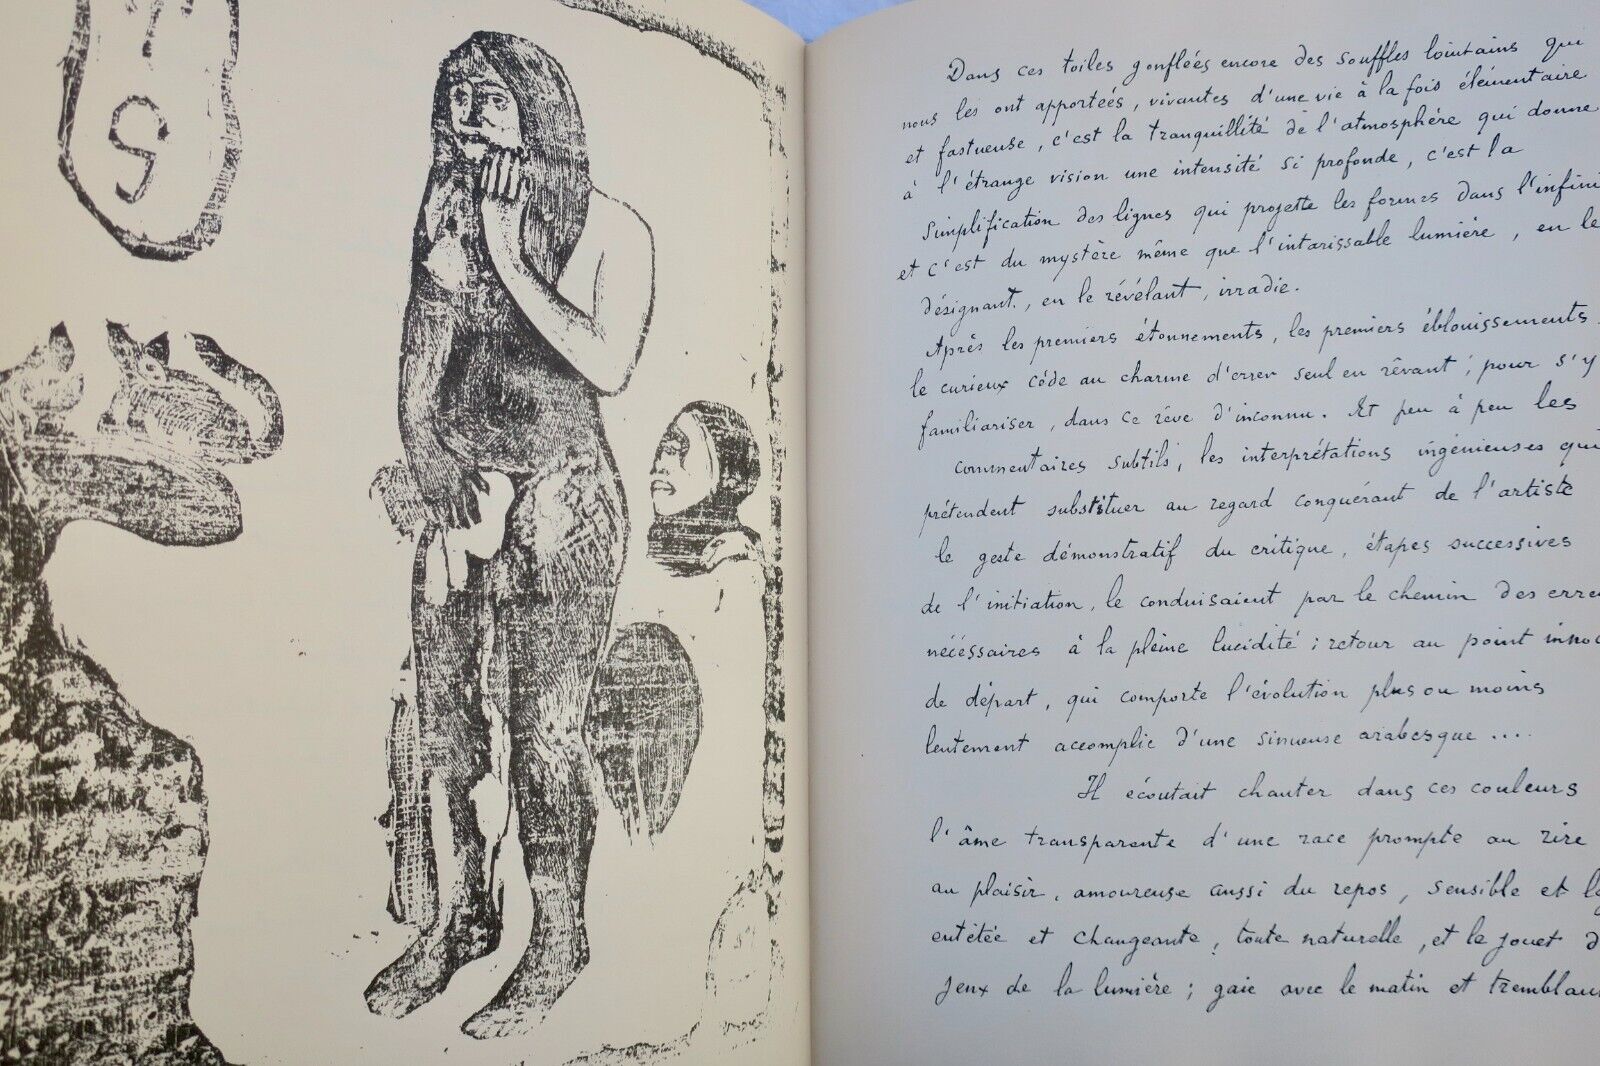 Dans ces toiles gonflées encore des souffles lointains qui
nous les ont apportées, vivantes d'une vie à la fois élémentaire
et fastueuse, c'est la tranquillité de l'atmosphère qui donne
à l'étrange vision une intensité si profonde, c'est la
simplification des lignes qui projette les formes dans l'infini
et c'est du mystère même que l'intarissable lumière, en le
désignant, en le révélant, irradie.
Après les premiers étonnements, les premiers éblouissements
le curieux cède au charme d'errer seul en rêvant; pour s'y
familiariser, dans ce rêve d'inconnu. Et peu à peu les
commentaires subtils, les interprétations ingénieuses qui
prétendent substituer au regard conquérant de l'artiste
le geste démonstratif du critique, étapes successives
de l'initiation, le conduisaient par le chemin des erreu
nécéssaires à la pleine lucidité; retour au point innoc
de départ, qui comporte l'évolution plus ou moins
lentement accomplie d'une sinueuse arabesque ....
Il écoutait chanter dans ces couleurs
l'âme transparente d'une race prompte au rire
au plaisir, amoureuse aussi du repos, sensible et
entêtée et changeante, toute naturelle, et le jouet d
jeux de la lumière; gaie avec le matin et tremblan